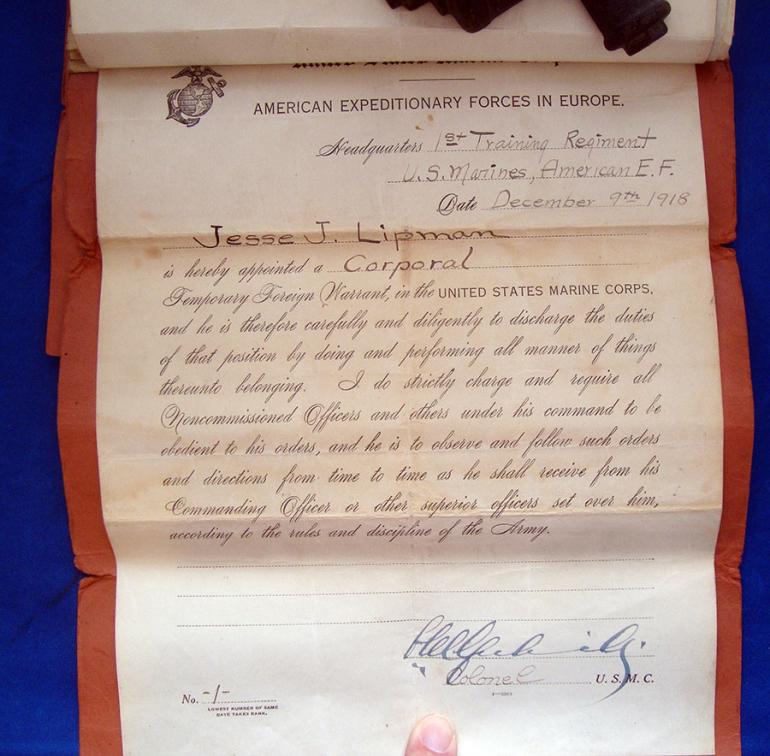 AMERICAN EXPEDITIONARY FORCES IN EUROPE.
Headquarters 1st Training Regiment
U.S. Marines, American E.F.
Date December 9th 1918
Jesse J. Lipman
is hereby appointed a Corporal
Temporary Foreign Warrant, in the UNITED STATES MARINE CORPS,
and he is therefore carefully and diligently to discharge the duties
of that position by doing and performing all manner of things
thereunto belonging. I do strictly charge and require all
Noncommissioned Officers and others under his command to be
obedient to his orders, and he is to observe and follow such orders
and directions from time to time as he shall receive from his
Commanding Officer or other superior officers set over him,
according to the rules and discipline of the Army.
Colonel U.S.M.C.
No. -1-
LOWEST NUMBER OF SAME
DATE TAKES RANK.